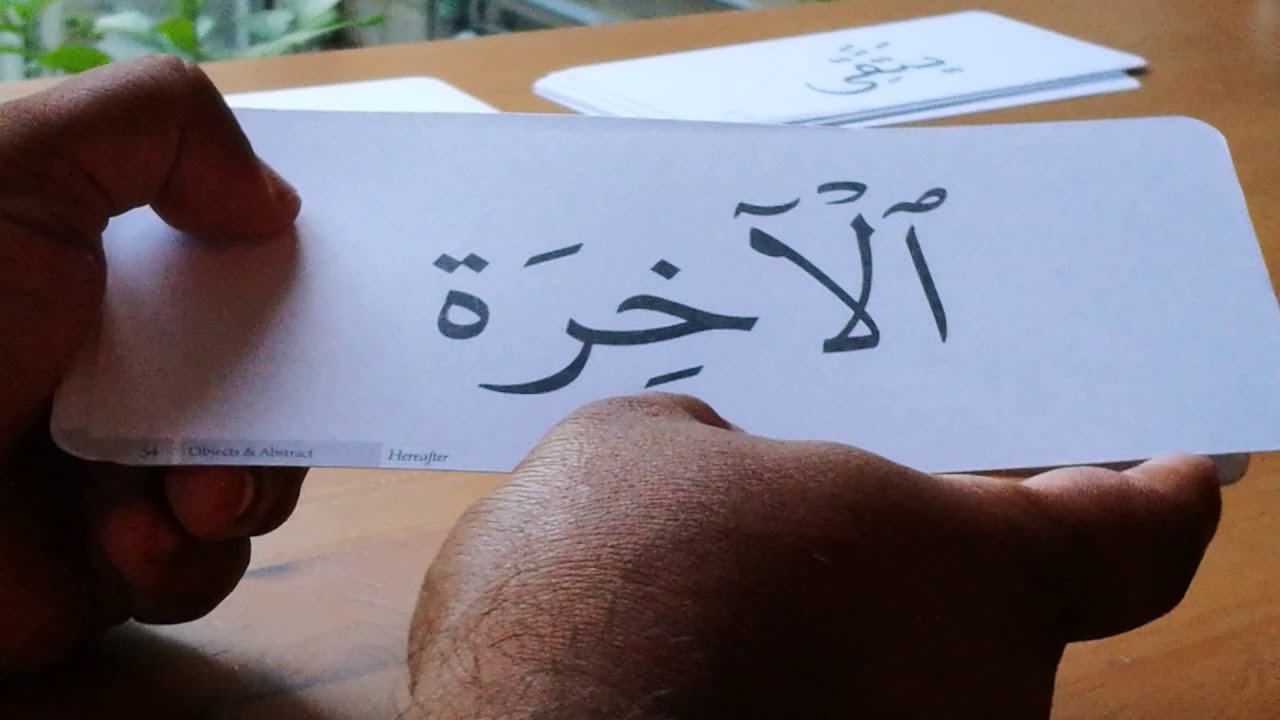 ٱلْآخِرَة
54 Objects & Abstract Hereafter